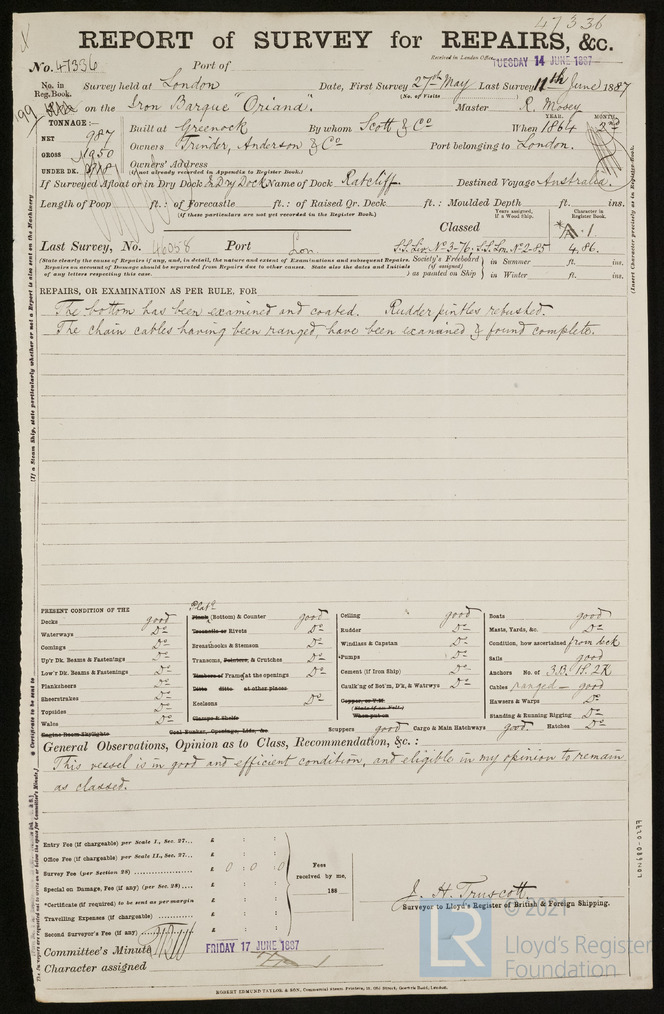 47336
REPORT of SURVEY for REPAIRS, &c.
Received in London Office TUESDAY 14 JUNE 1887
No. 47336 Port of
No. in Reg. Book. Survey held at London Date, First Survey 27th May Last Survey 11th June 1887
(No. of Visits
199 on the Iron Barque "Oriana". Master R. Mosey
TONNAGE:— YEAR. MONTH.
NET 987 Built at Greenock By whom Scott & Co When 1864 2nd
GROSS 1050 Owners Trinder, Anderson & Co Port belonging to London.
UNDER DK. Owners' Address
(if not already recorded in Appendix to Register Book.)
If Surveyed Afloat or in Dry Dock In Dry Dock Name of Dock Ratcliff Destined Voyage Australia.
Length of Poop ft.: of Forecastle ft.: of Raised Qr. Deck ft.: Moulded Depth ft. ins.
(If these particulars are not yet recorded in the Register Book.)
Years assigned, if a Wood Ship. Character in Register Book.
Classed A.1
Last Survey, No. 46058 Port Lon. S.S. Liv. No 3-76; S.S. Lon. No 2-85 4.86.
(State clearly the cause of Repairs if any, and, in detail, the nature and extent of Examinations and subsequent Repairs. Society's Freeboard in Summer ft. ins.
Repairs on account of Damage should be separated from Repairs due to other causes. State also the dates and Initials (if assigned)
of any letters respecting this case. as painted on Ship in Winter ft. ins.
REPAIRS, OR EXAMINATION AS PER RULE, FOR
The bottom has been examined and coated. Rudder pintles rebushed.
The chain cables having been ranged, have been examined & found complete.
PRESENT CONDITION OF THE
Decks good
Waterways Do
Comings Do
Up'r Dk. Beams & Fastenings Do
Low'r Dk. Beams & Fastenings Do
Planksheers Do
Sheerstrakes Do
Topsides Do
Wales Do
Engine Room Skylights
Plat'g
Plank (Bottom) & Counter good
Treenails or Rivets Do
Breasthooks & Stemson Do
Transoms, Pointers, & Crutches Do
Timbers of Frame at the openings Do
Ditto ditto at other places
Keelsons Do
Clamps & Shelfs
Coal Bunker, Openings, Lids, &c
Ceiling good
Rudder Do
Windlass & Capstan Do
Pumps Do
Cement (if Iron Ship) Do
Caulk'ng of Bot'm, D'k, & Watrwys Do
Scuppers good Cargo & Main Hatchways good Hatches Do
Boats good
Masts, Yards, &c. Do
Condition, how ascertained from deck
Sails good
Anchors No. of 3B. 1S. 2K
Cables ranged — good
Hawsers & Warps Do
Standing & Running Rigging Do
General Observations, Opinion as to Class, Recommendation, &c.:
This vessel is in good and efficient condition, and eligible in my opinion to remain
as classed.
Entry Fee (if chargeable) per Scale I., Sec. 27... £ : :
Office Fee (if chargeable) per Scale II., Sec. 27... £ : :
Survey Fee (per Section 28) £ 0 : 0 : 0
Special on Damage, Fee (if any) (per Sec. 28).... £ : :
*Certificate (if required) to be sent as per margin £ : :
Travelling Expenses (if chargeable) £ : :
Second Surveyor's Fee (if any) £ : :
Fees
received by me,
188
J. H. Truscott.
Surveyor to Lloyd's Register of British & Foreign Shipping.
Committee's Minute FRIDAY 17 JUNE 1887
Character assigned
ROBERT EDMUND TAYLOR & SON,
(If a Steam Ship, state particularly whether or not a Report is also sent on the Machinery
(Insert Character precisely as in Register Book.
* Certificate to be sent to
LON680-0277
LR
© 2021
Lloyd's Register
Foundation